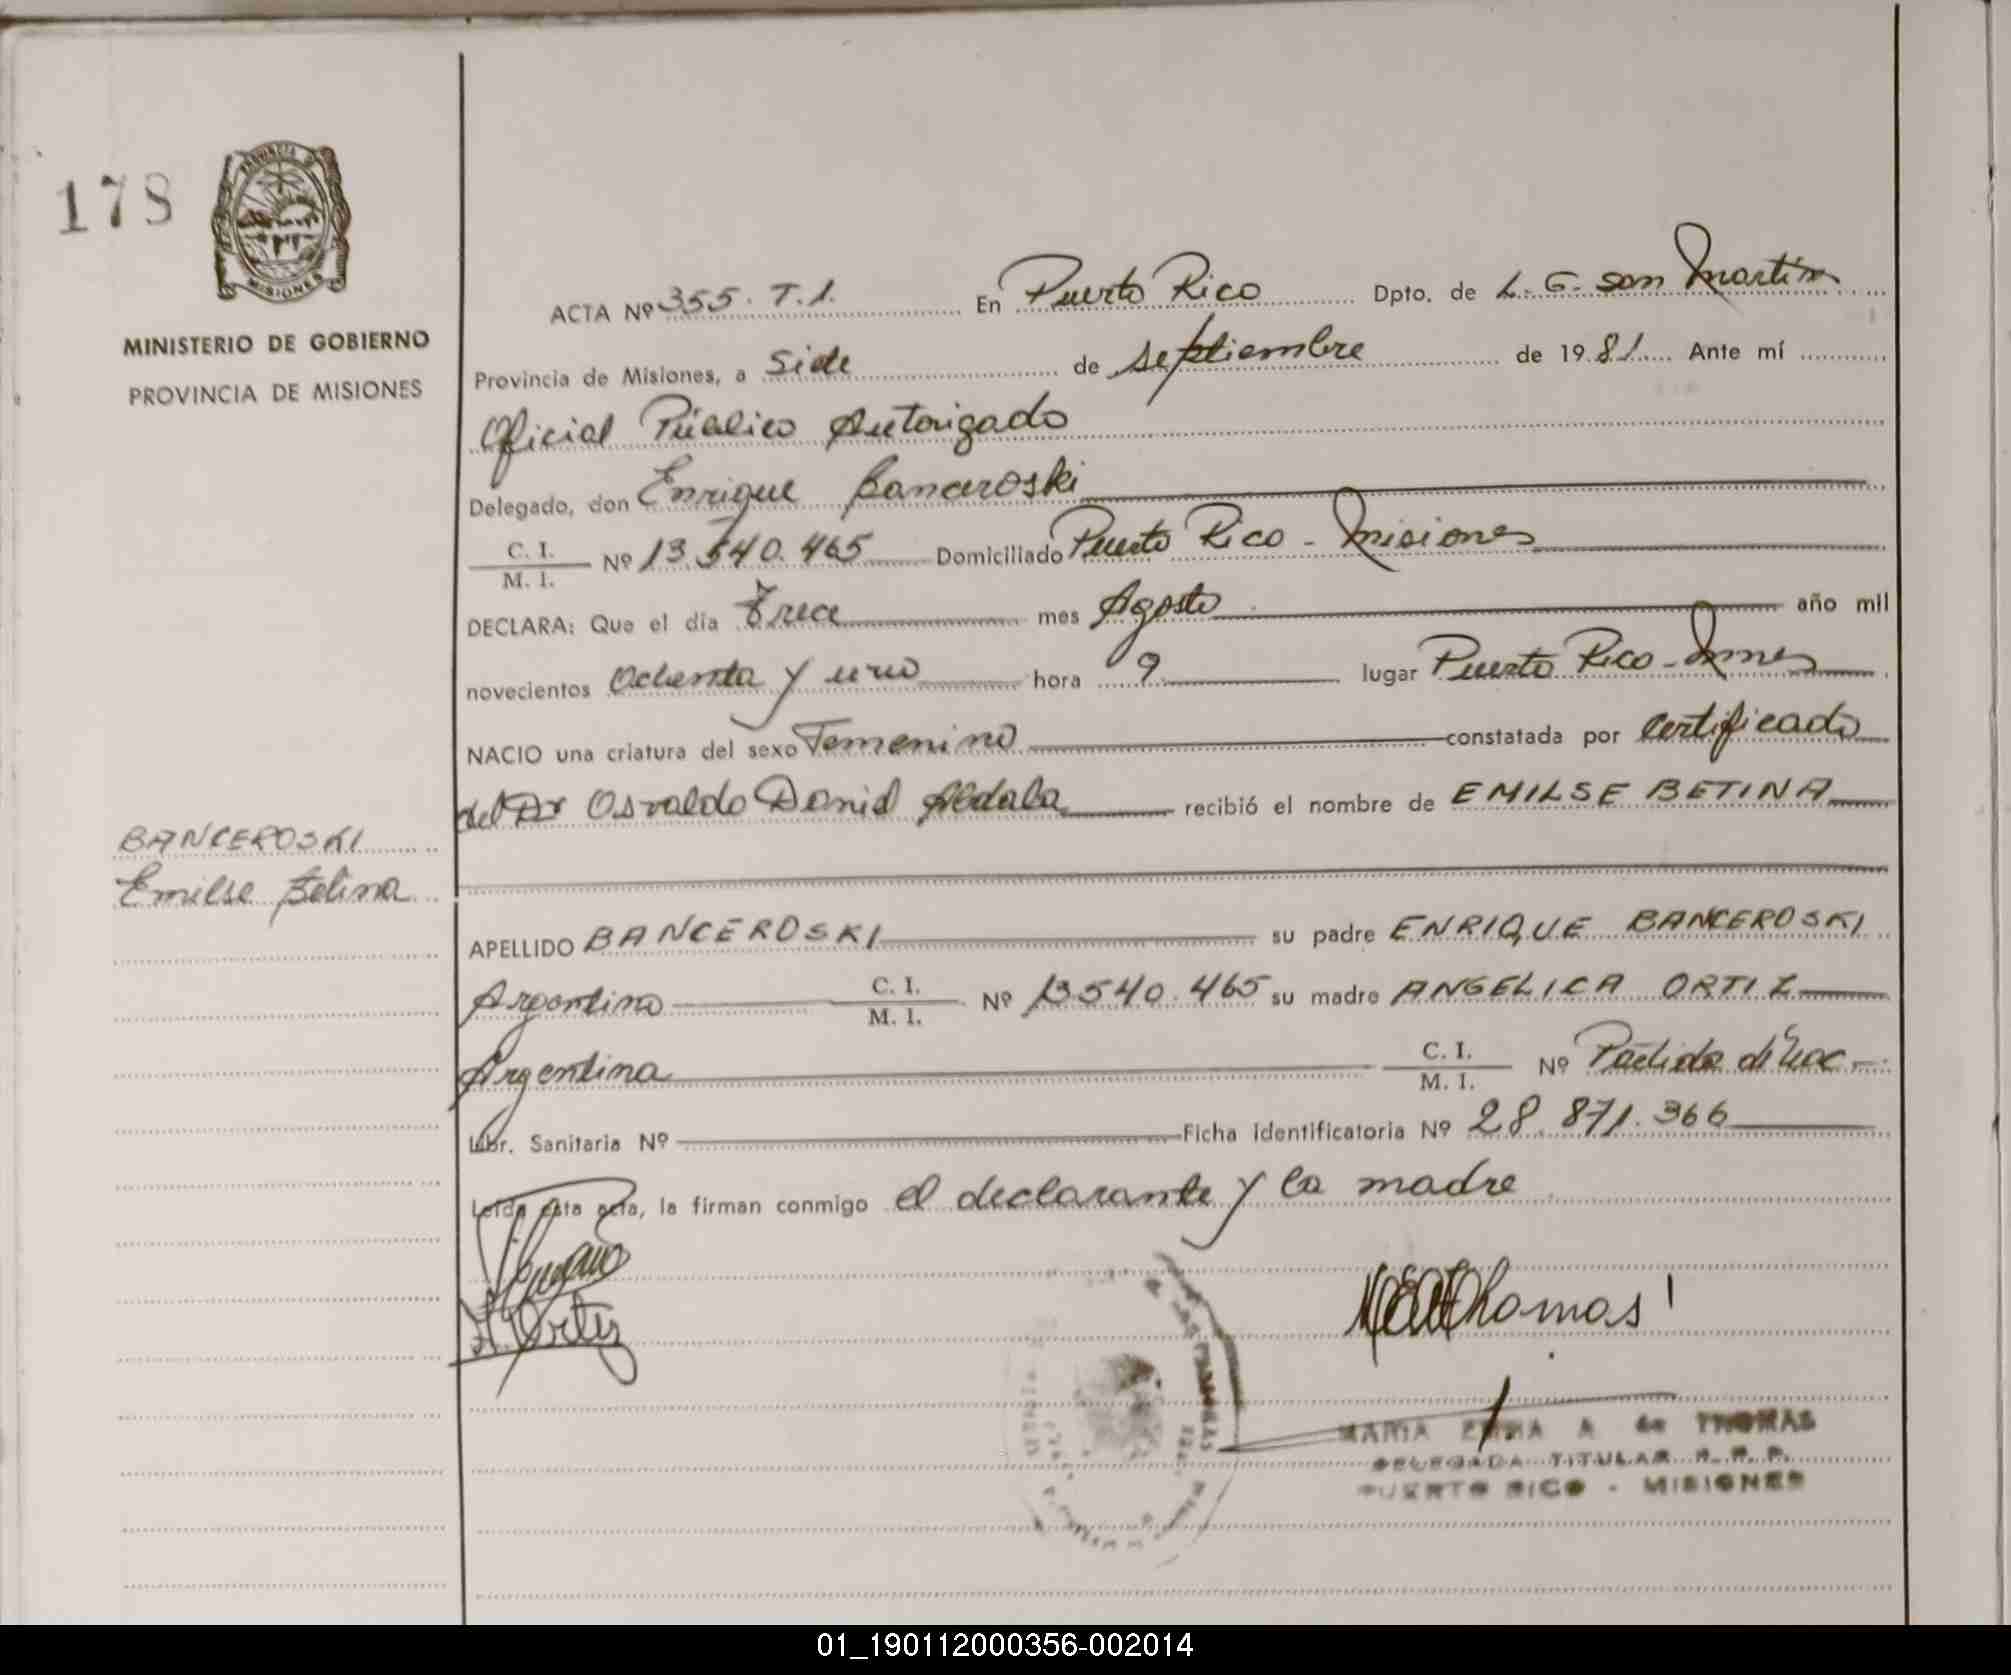 178
PROVINCIA DE
MISIONES
MINISTERIO DE GOBIERNO
PROVINCIA DE MISIONES
ACTA Nº 355. T. 1. En Puerto Rico Dpto. de L. G. San Martín
Provincia de Misiones, a Siete de Septiembre de 1981 Ante mí
Oficial Público Autorizado
Delegado, don Enrique Banceroski
C. I. / M. I. Nº 13.540.465 Domiciliado Puerto Rico - Misiones
DECLARA: Que el día Trece mes Agosto año mil
novecientos Ochenta y uno hora 9 lugar Puerto Rico - Mnes
NACIO una criatura del sexo Femenino constatada por certificado
del Dr Osvaldo Daniel Abdala recibió el nombre de EMILSE BETINA
BANCEROSKI
Emilse Betina
APELLIDO BANCEROSKI su padre ENRIQUE BANCEROSKI
Argentino C. I. / M. I. Nº 13540.465 su madre ANGELICA ORTIZ
Argentina C. I. / M. I. Nº Partida de Nac
Libr. Sanitaria Nº Ficha identificatoria Nº 28.871.366
Leída esta acta, la firman conmigo el declarante y la madre
A. Ortiz
Thomas
MARIA EMMA A de THOMAS
DELEGADA TITULAR R. P. P.
PUERTO RICO - MISIONES
01_190112000356-002014